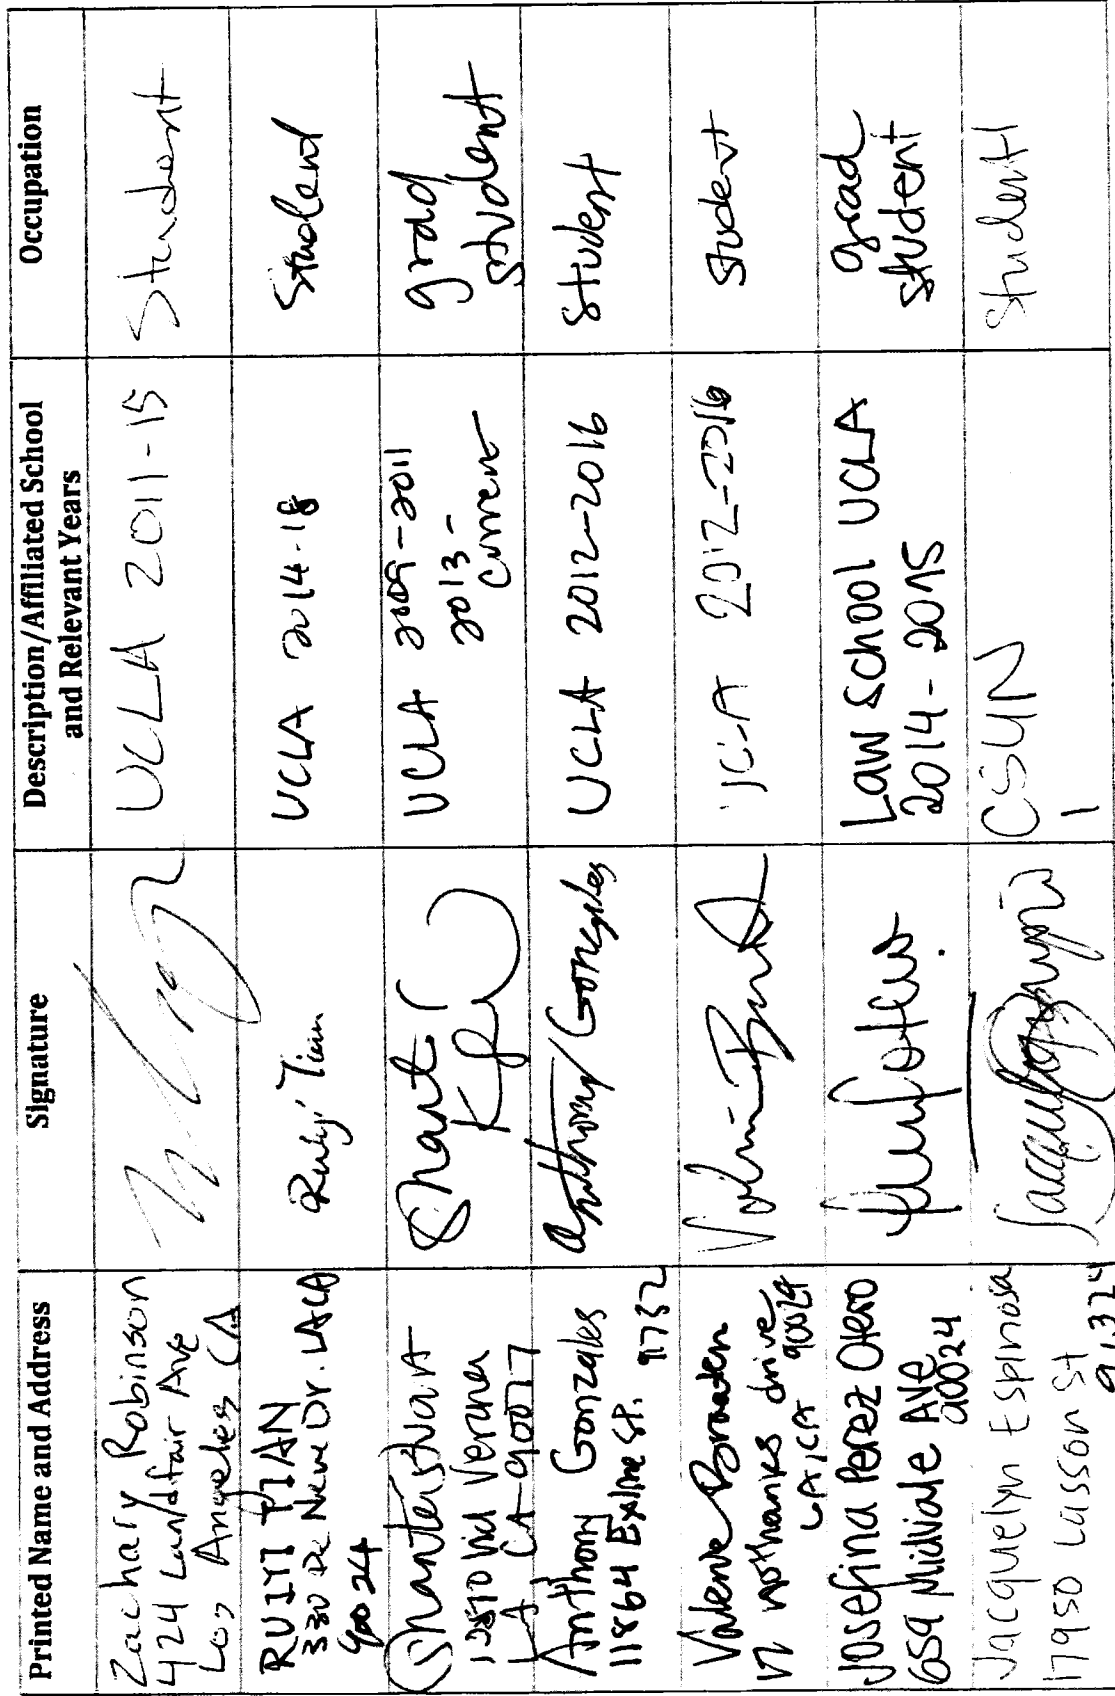 Printed Name and Address
Signature
Description/Affiliated School
and Relevant Years
Occupation
Zachary Robinson
424 Landfair Ave
Los Angeles CA
UCLA 2011-15
Student
RUIYI TIAN
330 De Neve Dr. LA CA
90024
Ruiyi Tian
UCLA 2014-18
Student
LA CA 90077
Shant
UCLA 2009-2011
2013-
Current
grad
student
Anthony Gonzales
11864 Exline St. 91732
Anthony Gonzales
UCLA 2012-2016
student
Valerie
17 nothanks drive
LA, CA
UCLA 2012-2016
student
Josefina Perez Otero
659 Midvale AVE
90024
Law School UCLA
2014-2015
grad
student
Jacquelyn Espinosa
17950 Lassen St
91324
CSUN
1
student